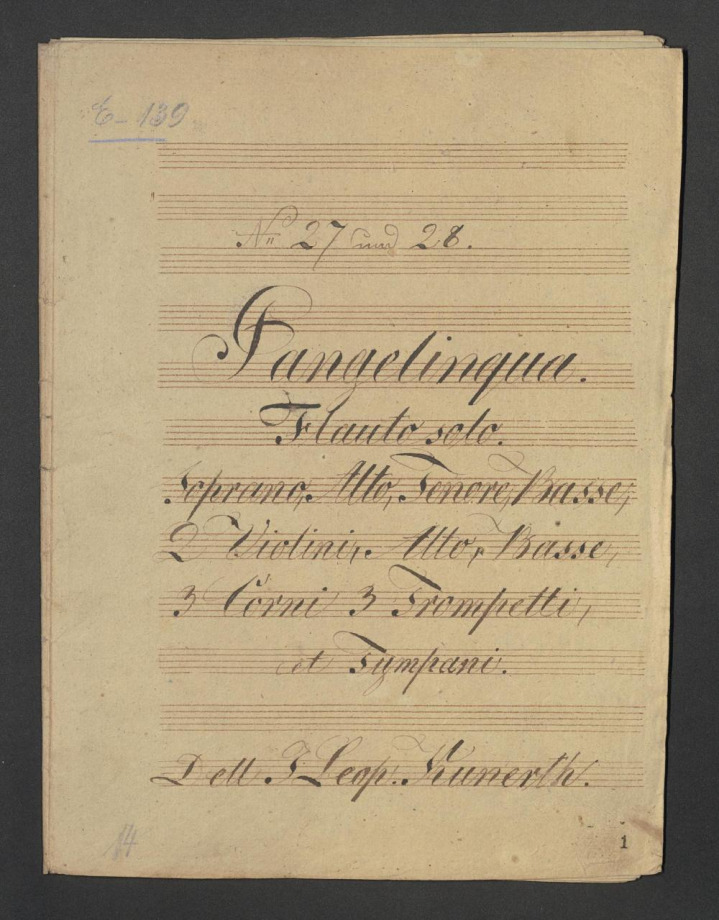 E-139
No 27 und 28.
Pangelinqua.
Flauto solo.
Soprano, Alto, Tenore, Basse,
2 Violini, Alto, Basse,
3 Corni 3 Trompetti,
et Tympani.
Dell J Leop. Kunerth.
14
1